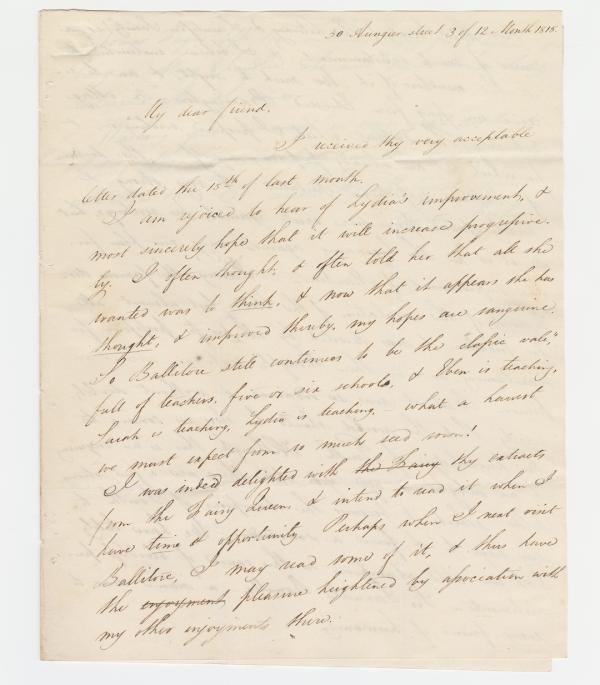 50 Aungier street 3 of 12 Month 1818.
My dear friend,
I received thy very acceptable
letter dated the 15th of last month.
I am rejoiced to hear of Lydia's improvement, &
most sincerely hope that it will increase progressive-
ly. I often thought, & often told her that all she
wanted was to think, & now that it appears she has
thought, & improved thereby, my hopes are sanguine.
So Ballitore still continues to be the "classic vale,"
full of teachers, five or six schools, & Eben is teaching,
Sarah is teaching, Lydia is teaching, – what a harvest
we must expect from so much seed sown!
I was indeed delighted with the Fairy thy extracts
from the Fairy Queen, & intend to read it when I
have time & opportunity. Perhaps when I next visit
Ballitore, I may read some of it, & thus have
the enjoyment pleasure heightened by association with
my other enjoyments there.